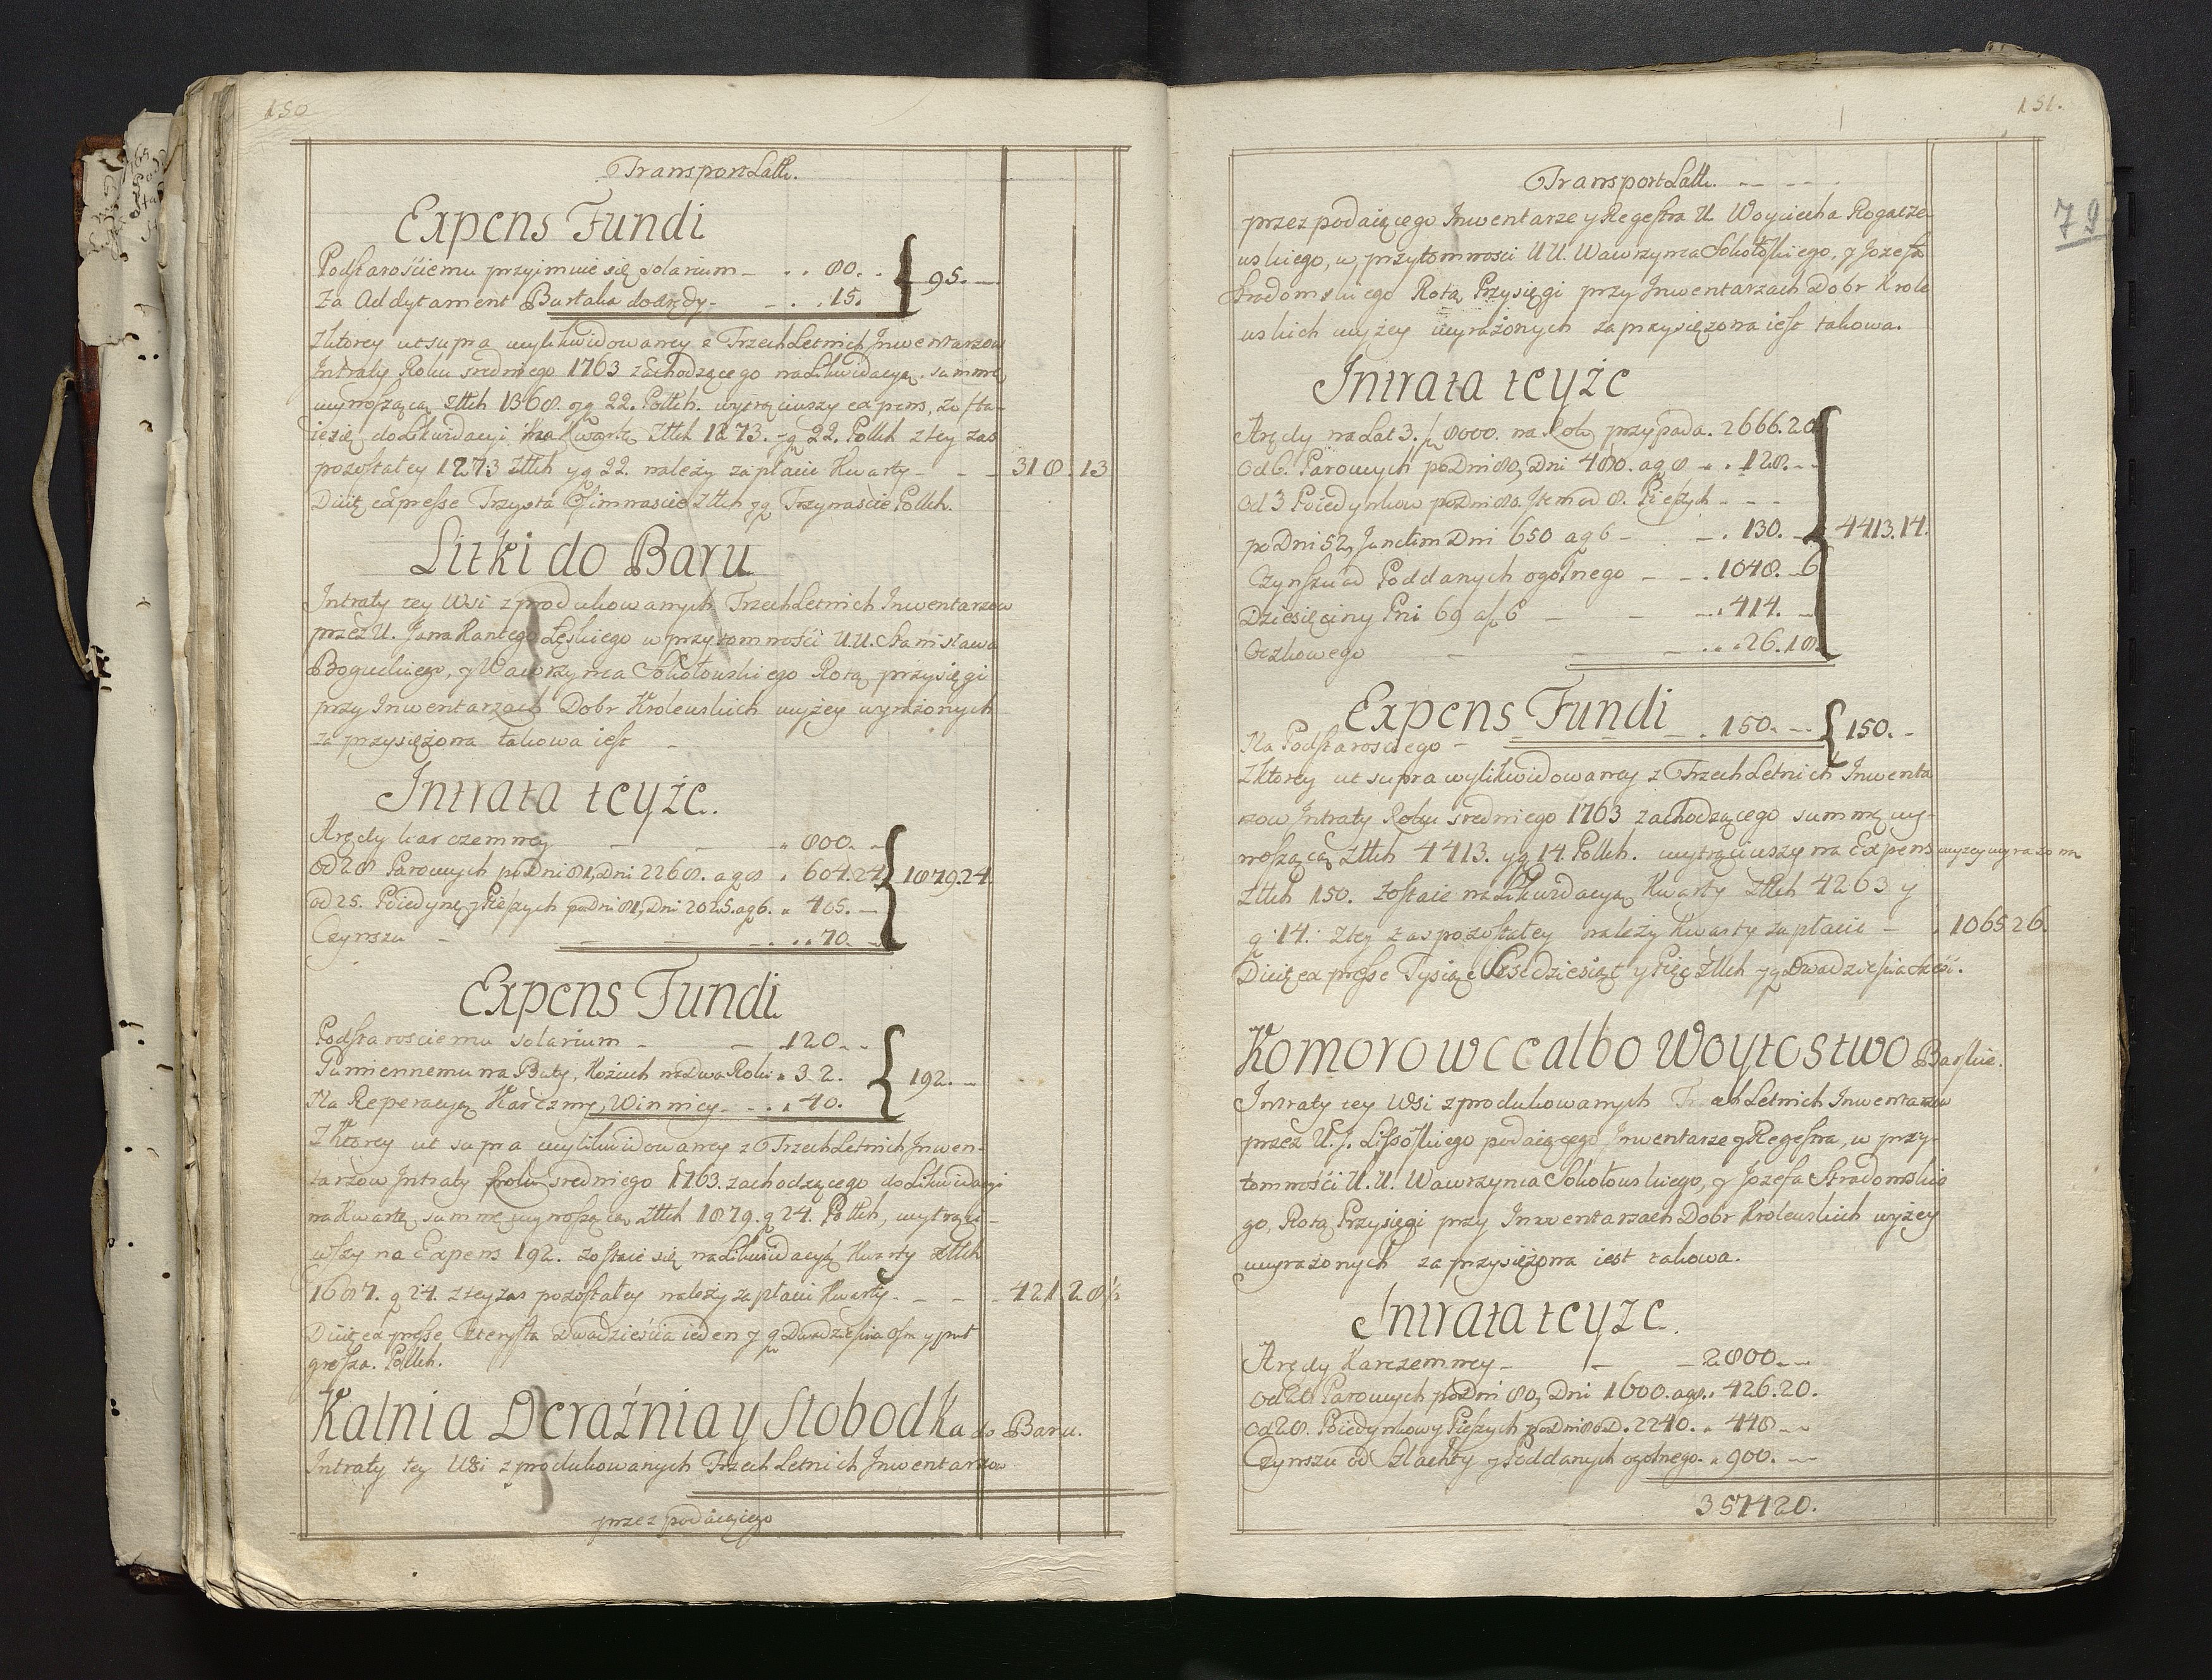 150
Transport Latt.
Expens Fundi
Podstarościemu przyimuie się solarium - . . 80. .
Za Addytament Burtaka do Arędy - - . . 15. 95. -
Z ktorey ut supra wylikwidowaney z Trzech Letnich Inwentarzow
Intraty Roku sredniego 1763 zachodzącego na Likwidacyą summę
wynoszącą Złłch 1368. gg 22. Pollch. wytrąciwszy expens, zosta-
ie się do Likwidacyi Kwarty Złłch 1273. gg 22. Pollch z tey zas
pozostałey 1273 Złłch y g 22. należy zapłacić Kwarty - - - 318. 13
Dicię expresse Trzysta Ośimnascie Złłch y g Trzynascie Pollch.
Litki do Baru
Intraty tey Wsi z produkowanych Trzech Letnich Inwentarzow
przez U. Jana Kantego Łęskiego w przytomności U.U. Stanisława
Boguckiego, y Wawrzynca Sokołowskiego Rotą przysięgi
przy Inwentarzach Dobr Krolewskich wyżey wyrażonych
zaprzysiężona takowa iest -
Intrata teyże.
Arędy karczemney - - " 800. -
od 28 Parowych po Dni 81, Dni 2268. a g 8 " 604.24 1879.24.
od 25. Poiedynę y Pieszych po Dni 81, Dni 2025. a g 6. " 405. -
Czynszu - - - - . . . 70. -
Expens Fundi
Podstarosciemu solarium - - 120. . .
Pumiennemu na Buty, Kożuch na Dwa Roki " 32. 192. -
Na Reperacyą Karczmy, Winnicy - - . . 40.
Z Ktorey ut supra wylikwidowaney z Trzech Letnich Inwen-
tarzow Intraty Roku sredniego 1763. zachodzącego do Likwidacyi
na Kwartę summę wynoszącą Złłch 1879. g 24. Pollch, wytrąci-
wszy na Expens 192. zostaie się na Likwidacyą Kwarty Złłch
1687. g 24. z tey zas pozostałey należy zapłacić Kwarty - - - - 421 28 ½
Dicię expresse Czterysta Dwadzieścia ieden y g Dwadziescia ośm y puł
grosza. Pollch.
Kalnia Deraźnia y Słobodka do Baru.
Intraty tey Wsi z produkowanych Trzech Letnich Inwentarzow
przez podaiącego
151.
79
Transport Latt. - - - -
przez podaiącego Inwentarze y Regestra U. Woyciecha Rogacze-
wskiego, w przytomnosci U.U. Wawrzynca Sokołoskiego, y Jozefa
Stradomskiego Rotą Przysięgi przy Inwentarzach Dobr Krole
wskich wyżey wyrażonych zaprzysiężona iest takowa.
Intrata teyże
Arędy na Lat 3. p 8000. na Rok przypada. 2666.20
od 6. Parowych po Dni 80, Dni 480. a g 8 - . . 128. -
od 3 Poiedynkow po Dni 80. Item od 8. Pieszych - - -
po Dni 52, Junctim Dni 650 a g 6 - - . 130. - 4413.14.
Czynszu od Poddanych ogolnego - - . 1048. 6
Dziesięciny Pni 69 a f 6 - - - . . 414. -
Oczkowego - - - . . . 26.18
Expens Fundi
Na Podstarosciego - . 150. - - 150. -
Z ktorey ut supra wylikwidowaney z Trzech Letnich Inwenta
rzow Intraty Roku sredniego 1763 zachodzącego summę wy-
noszącą Złłch 4413. y g 14. Pollch. wytrąciwszy na Expens wyzey wyrazone
Złłch 150. zostaie na Likwidacyą Kwarty Złłch 4263 y
g 14. z tey zas pozostałey należy Kwarty zapłacić - . 1065 26.
Dicię expresse Tysiąc Sześdziesiąt y Pięć Złłch y g Dwadziescia sześć.
Komorowce albo Woytostwo Barskie.
Intraty tey Wsi z produkowanych Trzech Letnich Inwentarzow
przez U.J. Lissoskiego podaiącego Inwentarze y Regestra, w przy-
tomności U.U. Wawrzynca Sokołowskiego, y Jozefa Stradomskie
go, Rotą Przysięgi przy Inwentarzach Dobr Krolewskich wyżey
wyrażonych zaprzysiężona iest takowa.
Intrata teyże.
Arędy Karczemney - - - 2800. - -
od 20 Parowych po Dni 80, Dni 1600. a g 8. " 426.20.
od 28. Poiedynkow y Pieszych po Dni 80 D. 2240. " 448 - -
Czynszu od Szlachty y Poddanych ogolnego. " 900. - -
357420.